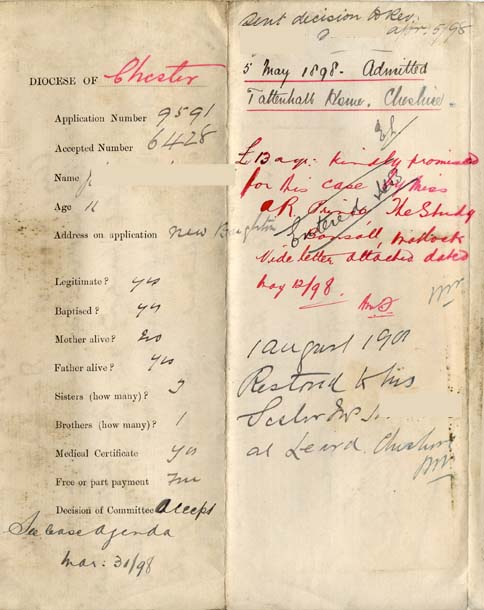 DIOCESE OF Chester
Application Number 9591
Accepted Number 6428
Name
Age 11
Address on application New
Legitimate? yes
Baptised? yes
Mother alive? No
Father alive? yes
Sisters (how many)? 3
Brothers (how many)? 1
Medical Certificate yes
Free or part payment Free
Decision of Committee Accept
See Case Agenda
Mar: 31/98
Sent decision to Rev.
Apr. 5/98
5 May 1898. Admitted
Tattenhall Home. Cheshire.
£13 a yr: kindly promised
for this case by Miss
The Study
Bonsall, Matlock
Entered
Vide letter attached dated
May 12/98.
1 August 1901
Restored to his
Sister Mrs J.
at Cheshire